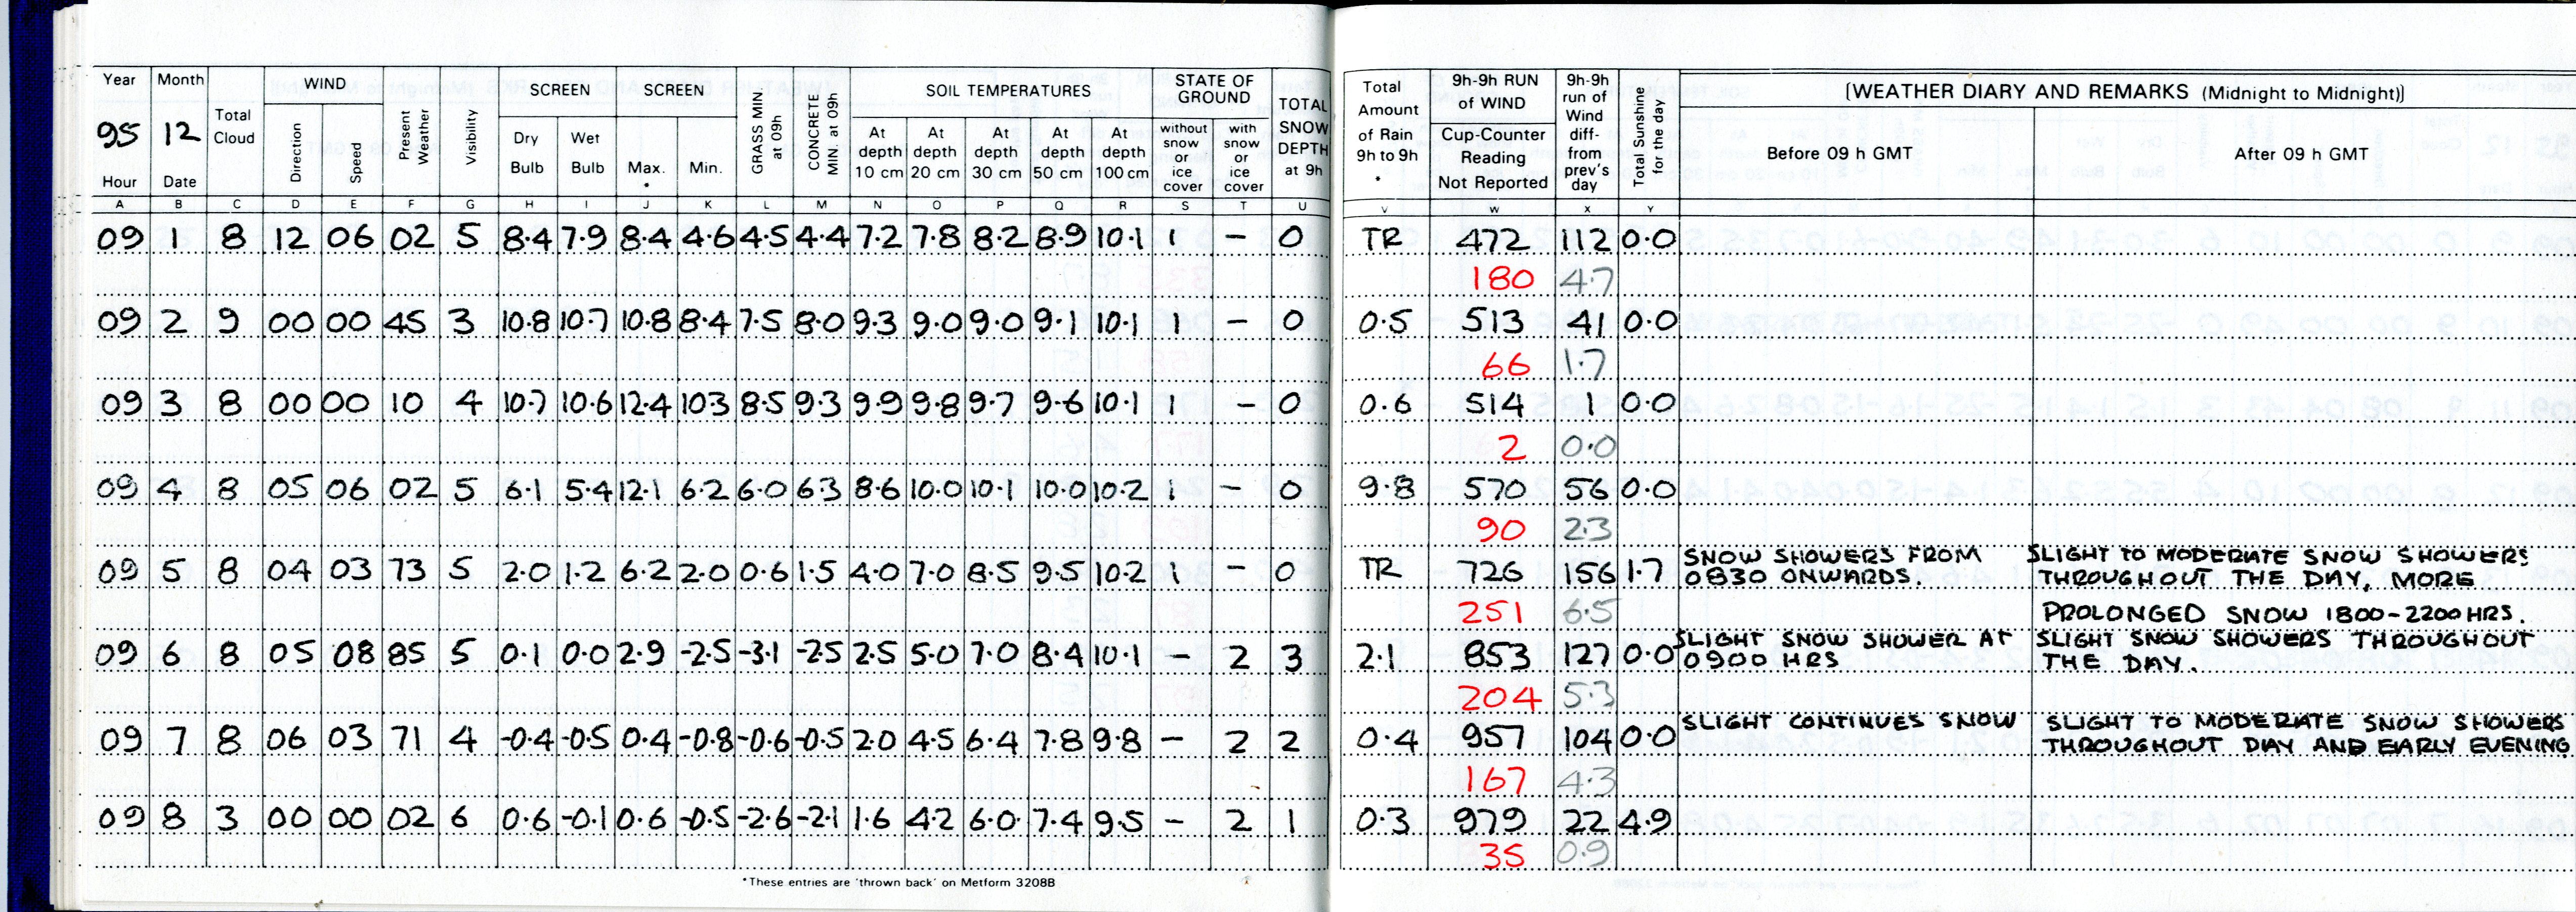 Year Month WIND SCREEN SCREEN SOIL TEMPERATURES STATE OF GROUND
95 12 Total Cloud Direction Speed Present Weather Visibility Dry Bulb Wet Bulb Max. * Min. GRASS MIN at 09h CONCRETE MIN. at 09h At depth 10 cm At depth 20 cm At depth 30 cm At depth 50 cm At depth 100 cm without snow or ice cover with snow or ice cover TOTAL SNOW DEPTH at 9h
Hour Date
Total Amount of Rain 9h to 9h * 9h-9h RUN of WIND Cup-Counter Reading Not Reported 9h-9h run of Wind diff- from prev's day Total Sunshine for the day [WEATHER DIARY AND REMARKS (Midnight to Midnight)]
Before 09 h GMT After 09 h GMT
A B C D E F G H I J K L M N O P Q R S T U V W X Y
09 1 8 12 06 02 5 8·4 7.9 8·4 4·6 4·5 4·4 7·2 7·8 8·2 8·9 10·1 1 – 0 TR 472 112 0·0
180 4·7
09 2 9 00 00 45 3 10·8 10·7 10·8 8·4 7·5 8·0 9·3 9·0 9·0 9·1 10·1 1 – 0 0·5 513 41 0·0
66 1·7
09 3 8 00 00 10 4 10·7 10·6 12·4 103 8·5 9·3 9·9 9·8 9·7 9·6 10·1 1 – 0 0·6 514 1 0·0
2 0·0
09 4 8 05 06 02 5 6·1 5·4 12·1 6·2 6·0 6·3 8·6 10·0 10·1 10·0 10·2 1 – 0 9·8 570 56 0·0
90 2·3
09 5 8 04 03 73 5 2·0 1·2 6·2 2·0 0·6 1·5 4·0 7·0 8·5 9·5 10·2 1 – 0 TR 726 156 1·7 SNOW SHOWERS FROM 0830 ONWARDS. SLIGHT TO MODERATE SNOW SHOWERS THROUGHOUT THE DAY, MORE
251 6·5 PROLONGED SNOW 1800-2200 HRS.
09 6 8 05 08 85 5 0·1 0·0 2·9 -2·5 -3·1 -2·5 2·5 5·0 7·0 8·4 10·1 – 2 3 2·1 853 127 0·0 SLIGHT SNOW SHOWER AT 0900 HRS SLIGHT SNOW SHOWERS THROUGHOUT THE DAY.
204 5·3
09 7 8 06 03 71 4 -0·4 -0·5 0·4 -0·8 -0·6 -0·5 2·0 4·5 6·4 7·8 9·8 – 2 2 0·4 957 104 0·0 SLIGHT CONTINUES SNOW SLIGHT TO MODERATE SNOW SHOWERS THROUGHOUT DAY AND EARLY EVENING.
167 4·3
09 8 3 00 00 02 6 0·6 -0·1 0·6 -0·5 -2·6 -2·1 1·6 4·2 6·0 7·4 9·5 – 2 1 0·3 979 22 4·9
35 0·9
*These entries are 'thrown back' on Metform 3208B